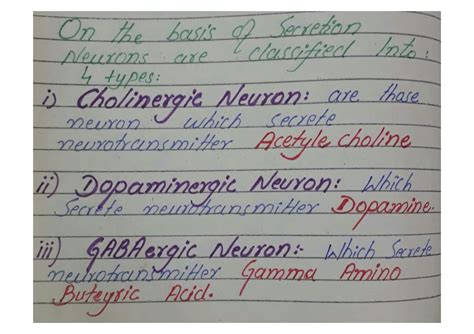 On the basis of Secretion
Neurons are classified Into:
4 types:
i) Cholinergic Neuron: are those
neuron which secrete
neurotransmitter Acetyle choline
ii) Dopaminergic Neuron: Which
Secrete neurotransmitter Dopamine.
iii) GABAergic Neuron:- Which Secrete
neurotransmitter Gamma Amino
Buteyric Acid.